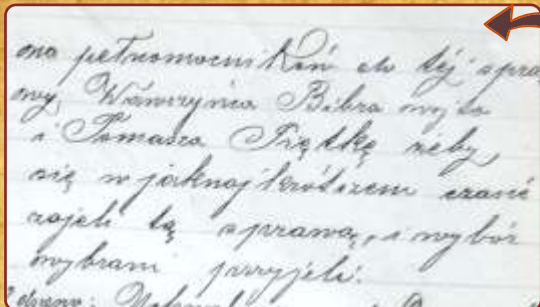 no pełnomocników do téj spra
wy, Wawrzyńca Bibra wójta
i Tomasza Piętkę żeby,
się w jaknajkrótszem czasie
zajeli tą sprawą, i wybór
wybrani przyjeli.